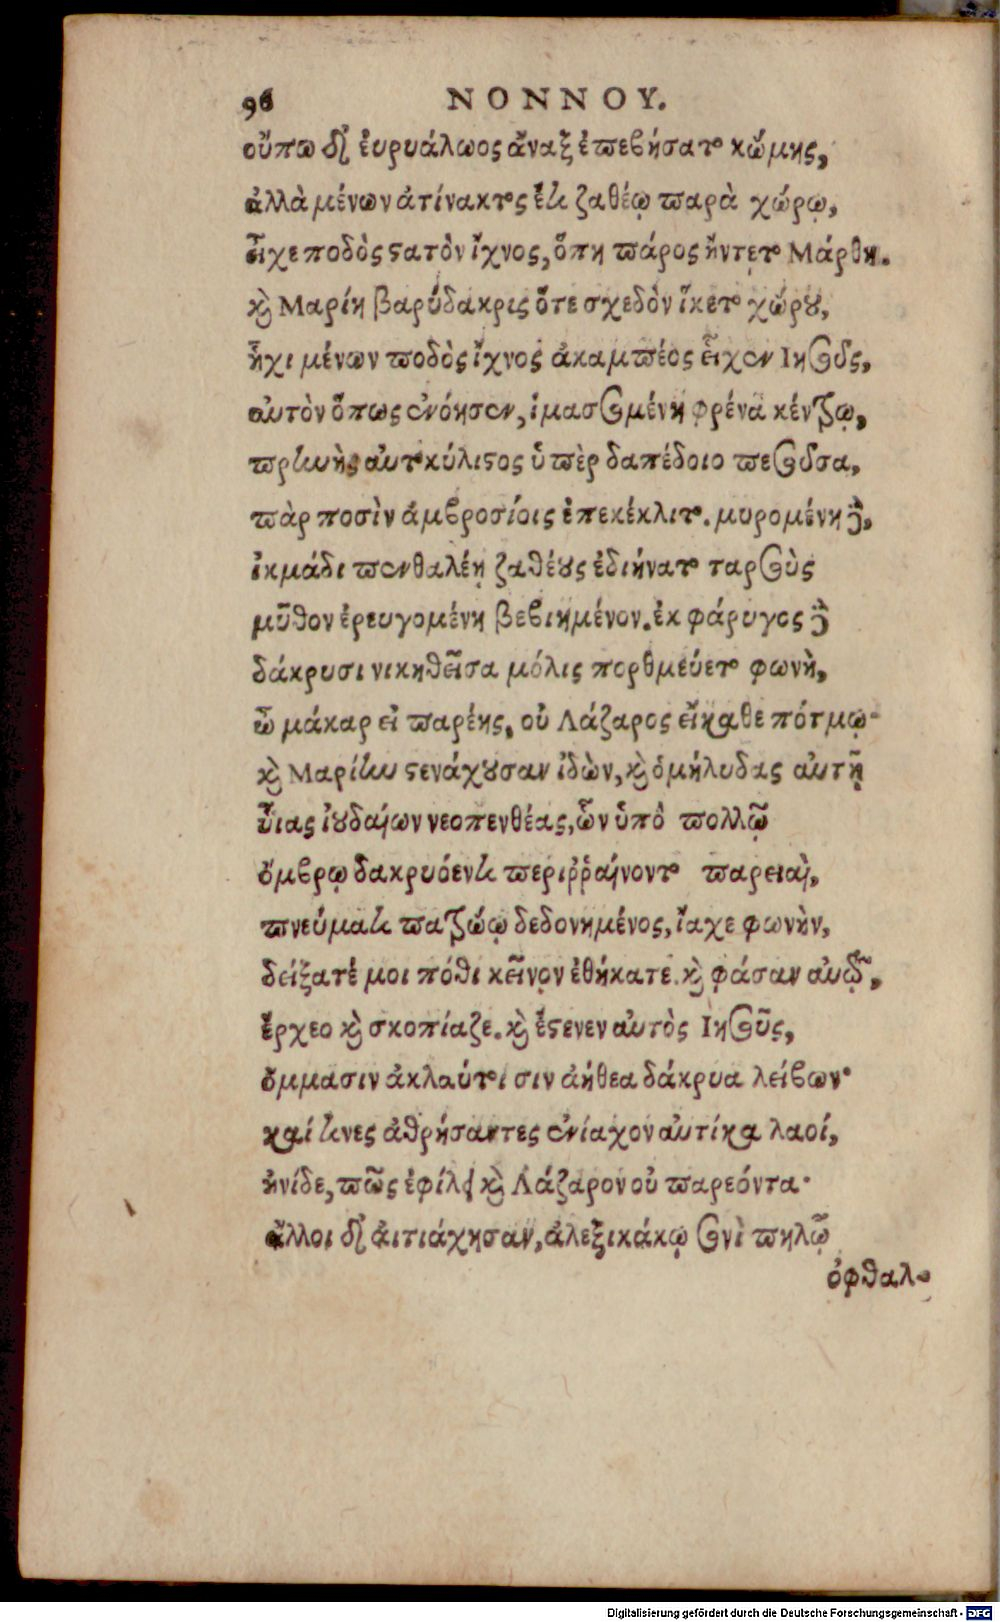 96 ΝΟΝΝΟΥ.
οὔπω δ' ἐυρυάλωος ἄναξ ἐπεβήσατο κώμης,
ἀλλὰ μένων ἀτίνακτος ἔτι ζαθέῳ παρὰ χώρῳ,
εἶχε ποδὸς στατὸν ἴχνος, ὅπη πάρος ἤντετο Μάρθη.
καὶ Μαρίη βαρύδακρις ὅτε σχεδὸν ἵκετο χώρου,
ἧχι μένων ποδὸς ἴχνος ἀκαμπέος εἶχεν Ιησοῦς,
αὐτὸν ὅπως ἐνόησεν, ἱμασσομένη φρένα κέντρῳ,
πρηνὴς αὐτοκύλιστος ὑπὲρ δαπέδοιο πεσοῦσα,
πὰρ ποσὶν ἀμβροσίοις ἐπεκέκλιτο. μυρομένη δὲ,
ἰκμάδι πενθαλέῃ ζαθέους ἐδιήνατο ταρσοὺς
μῦθον ἐρευγομένη βεβιημένον. ἐκ φάρυγος δὲ
δάκρυσι νικηθεῖσα μόλις πορθμεύετο φωνὴ,
ὦ μάκαρ εἰ παρέης, οὐ Λάζαρος εἴκαθε πότμῳ·
καὶ Μαρίην στενάχουσαν ἰδὼν, καὶ ὁμήλυδας αὐτῇ
υἷας ἰουδαίων νεοπενθέας, ὧν ὑπὸ πολλῷ
ὄμβρῳ δακρυόεντι περιῤῥαίνοντο παρειαὶ,
πνεύματι πατρώῳ δεδονημένος, ἴαχε φωνὴν,
δείξατέ μοι πόθι κεῖνον ἐθήκατε. καὶ φάσαν αὐτῷ,
ἔρχεο καὶ σκοπίαζε. καὶ ἔστενεν αὐτὸς Ιησοῦς,
ὄμμασιν ἀκλαύτοισιν ἀήθεα δάκρυα λείβων·
καί τινες ἀθρήσαντες ἐνίαχον αὐτίκα λαοί,
ἠνίδε, πῶς ἐφίλει καὶ Λάζαρον οὐ παρεόντα·
ἄλλοι δ' ἀιτιάχησαν, ἀλεξικάκῳ σὺν πηλῷ
ὀφθαλ-
Digitalisierung gefördert durch die Deutsche Forschungsgemeinschaft - DFG